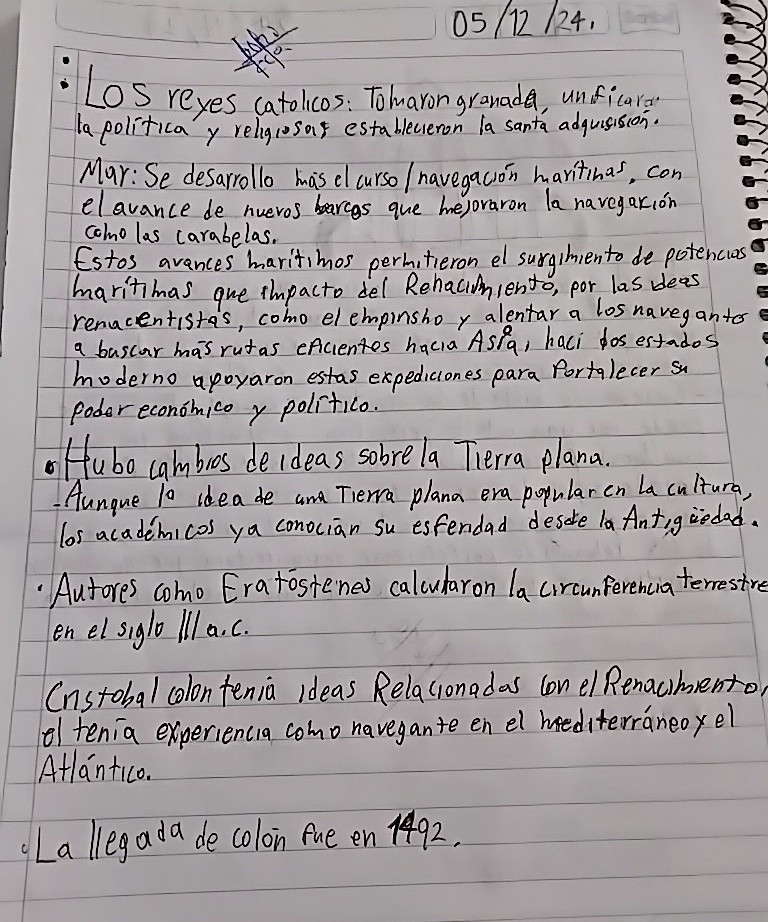 05/12/24.
Los reyes catolicos: Tomaron granada, unificaron
la política y religiosas establecieron la santa adquisision.
Mar: Se desarrollo más el curso/navegación marítimas, con
el avance de nuevos barcos que mejoraron la navegación
como las carabelas.
Estos avances marítimos permitieron el surgimiento de potencias
marítimas que impacto del Renacimiento, por las ideas
renacentistas, como el empinsho y alentar a los navegantes
a buscar más rutas eficientes hacia Asia, haci los estados
moderno apoyaron estas expediciones para fortalecer su
poder económico y político.
• Hubo cambios de ideas sobre la Tierra plana.
- Aunque la idea de una Tierra plana era popular en la cultura,
los académicos ya conocían su esferidad desde la Antigüedad.
• Autores como Eratóstenes calcularon la circunferencia terrestre
en el siglo III a.c.
Cristobal colon tenía ideas Relacionadas con el Renacimiento,
el tenía experiencia como navegante en el mediterráneo y el
Atlántico.
• La llegada de colón fue en 1492.